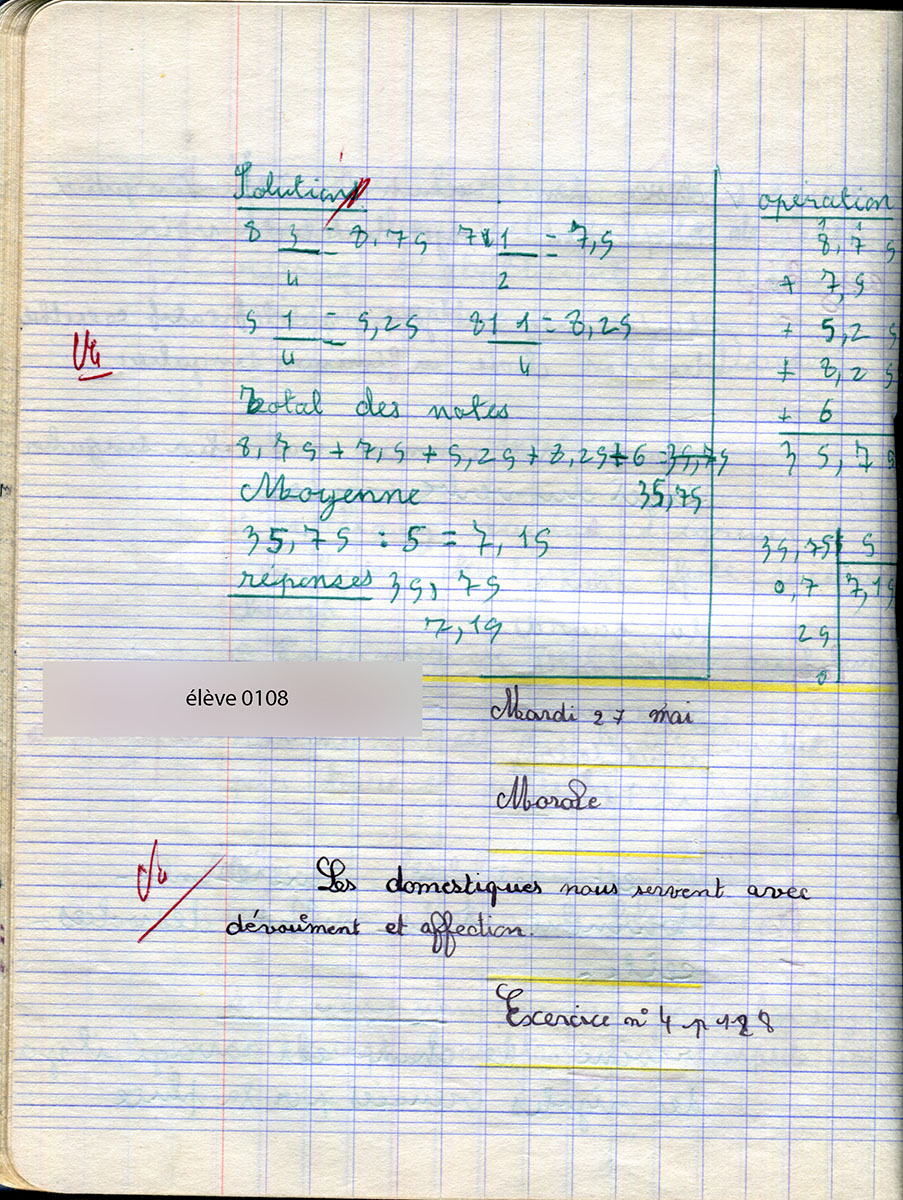 Solution
8 3/4 = 8,75 7 1/2 = 7,5
5 1/4 = 5,25 8 1/4 = 8,25
Vu
total des notes
8,75 + 7,5 + 5,25 + 8,25 + 6 = 35,75
Moyenne 35,75
35,75 : 5 = 7,15
réponses 35,75
7,15
opération
8,75
+ 7,5
+ 5,25
+ 8,25
+ 6
35,75
35,75 5
0,7 7,15
25
0
élève 0108
Mardi 27 mai
Morale
Vu
Les domestiques nous servent avec
dévoûment et affection.
Exercice n° 4 p 128